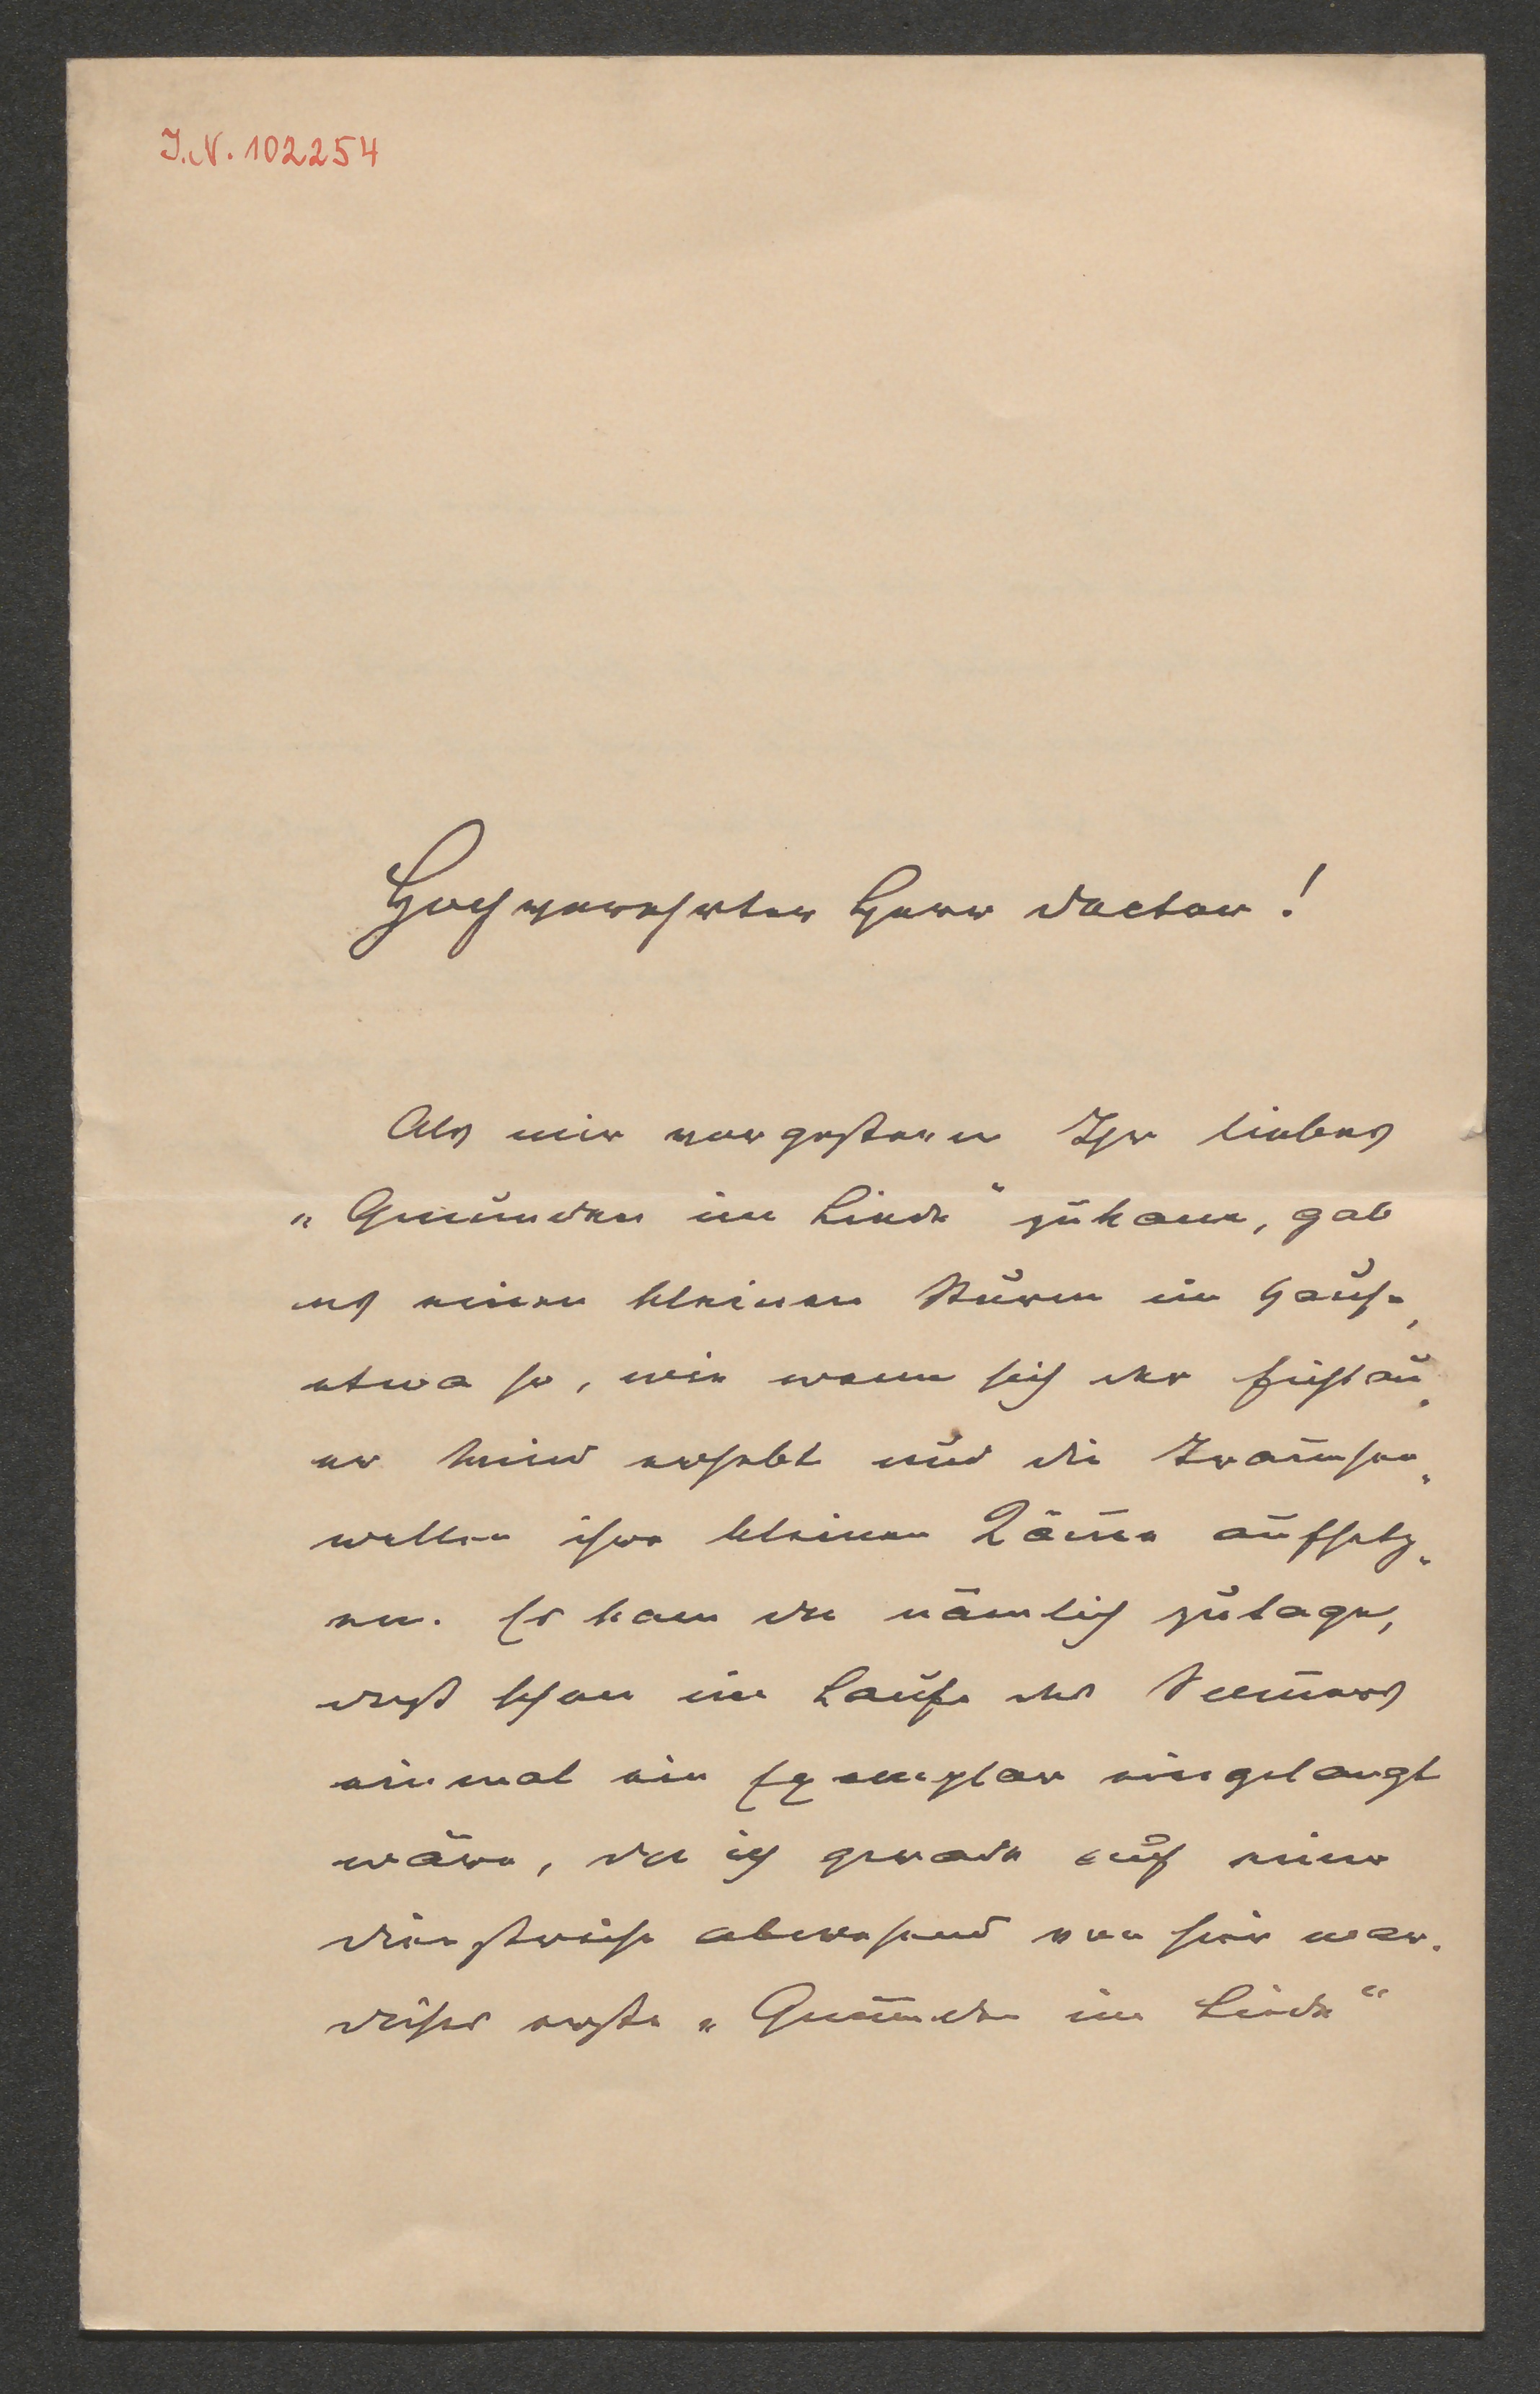 J.N. 102254
Hochverehrter Herr Doctor!
Als mir vorgestern Ihr liebes
„Gmunden im Liede“ zukam, gab
es einen kleinen Sturm im Hause,
etwa so, wie wenn sich der Fichtau-
er Wind erhebt und die Traunsee-
wellen ihre kleinen aufsetz-
en. Es kam da nämlich zutage,
dass schon im Laufe des Sommers
einmal ein Exemplar eingelangt
wäre, da ich gerade auf einer
Dienstreise abwesend von hier war.
Dieses erste „Gmunden im Liede“